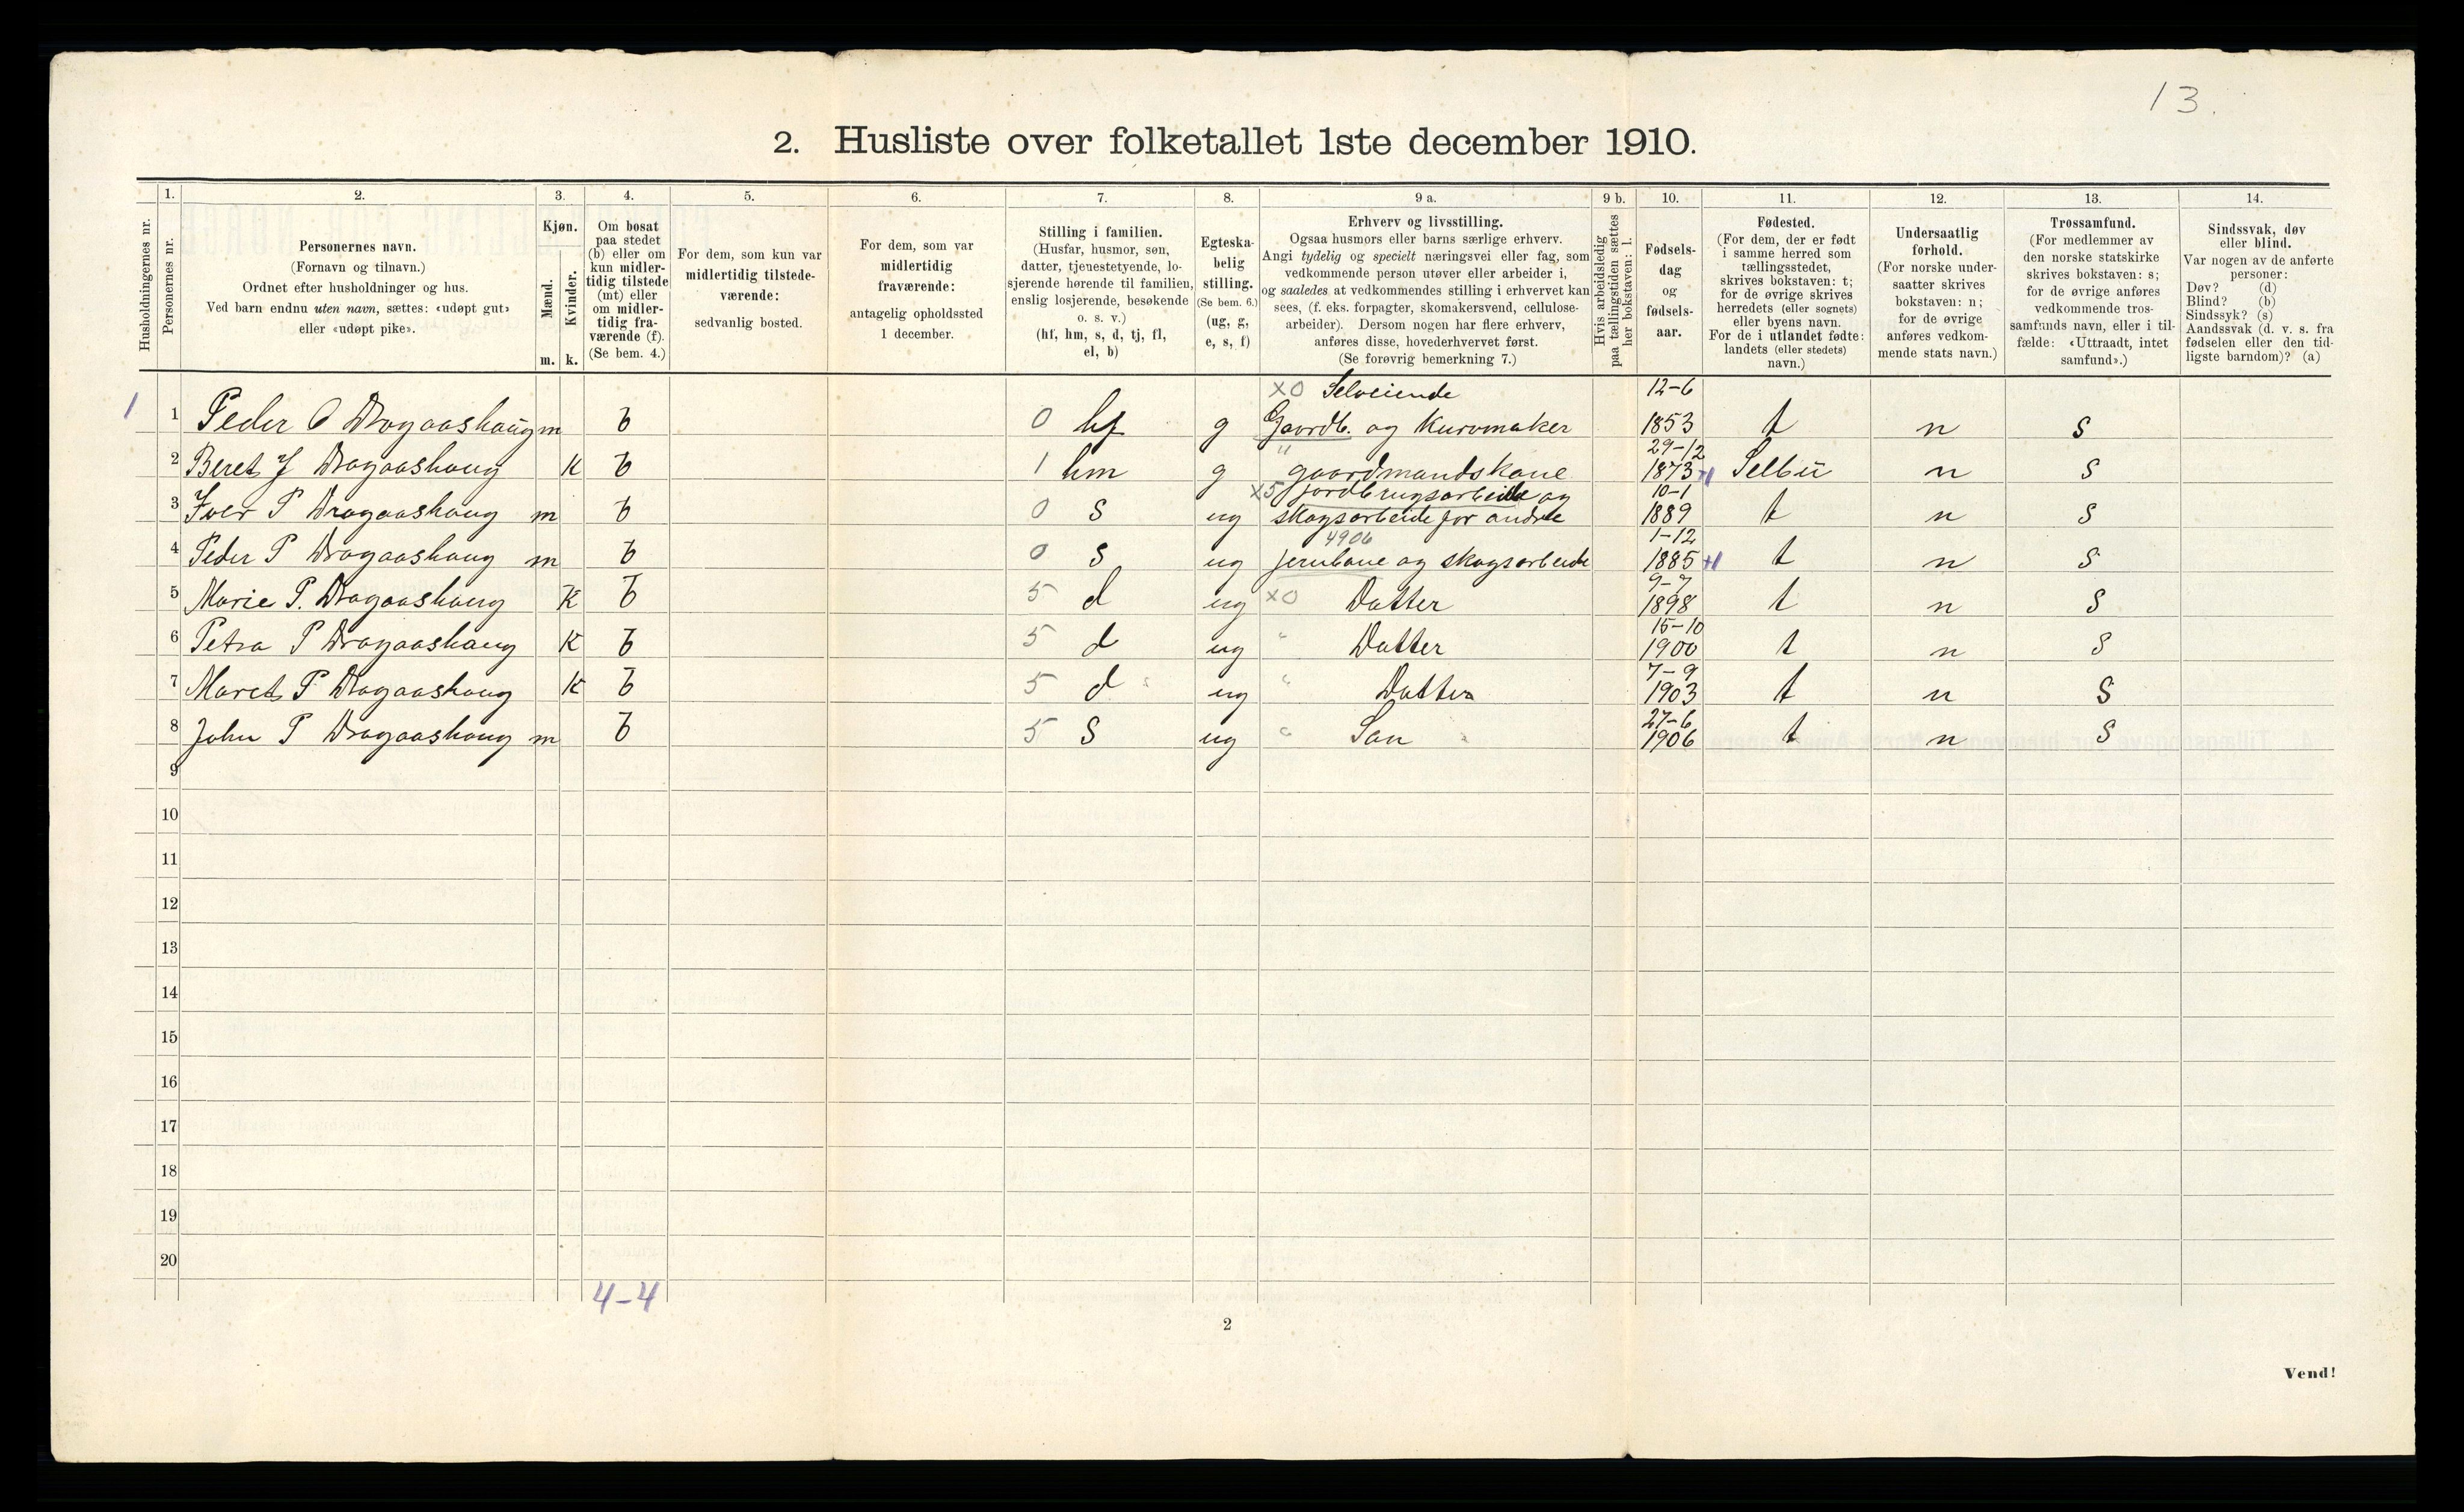 13.
2. Husliste over folketallet 1ste december 1910.
Husholdningernes nr.
1.
Personernes nr.
2.
Personernes navn.
(Fornavn og tilnavn.)
Ordnet efter husholdninger og hus.
Ved barn endnu uten navn, sættes: «udøpt gut»
eller «udøpt pike».
3.
Kjøn.
Mænd.
m.
Kvinder.
k.
4.
Om bosat
paa stedet
(b) eller om
kun midler-
tidig tilstede
(mt) eller
om midler-
tidig fra-
værende (f).
(Se bem. 4.)
5.
For dem, som kun var
midlertidig tilstede-
værende:
sedvanlig bosted.
6.
For dem, som var
midlertidig
fraværende:
antagelig opholdssted
1 december.
7.
Stilling i familien.
(Husfar, husmor, søn,
datter, tjenestetyende, lo-
sjerende hørende til familien,
enslig losjerende, besøkende
o. s. v.)
(hf, hm, s, d, tj, fl,
el, b)
8.
Egteska-
belig
stilling.
(Se bem. 6.)
(ug, g,
e, s, f)
9 a.
Erhverv og livsstilling.
Ogsaa husmors eller barns særlige erhverv.
Angi tydelig og specielt næringsvei eller fag, som
vedkommende person utøver eller arbeider i,
og saaledes at vedkommendes stilling i erhvervet kan
sees, (f. eks. forpagter, skomakersvend, cellulose-
arbeider). Dersom nogen har flere erhverv,
anføres disse, hovederhvervet først.
(Se forøvrig bemerkning 7.)
9 b.
Hvis arbeidsledig
paa tællingstiden sættes
her bokstaven: l.
10.
Fødsels-
dag
og
fødsels-
aar.
11.
Fødested.
(For dem, der er født
i samme herred som
tællingsstedet,
skrives bokstaven: t;
for de øvrige skrives
herredets (eller sognets)
eller byens navn.
For de i utlandet fødte:
landets (eller stedets)
navn.)
12.
Undersaatlig
forhold.
(For norske under-
saatter skrives
bokstaven: n;
for de øvrige
anføres vedkom-
mende stats navn.)
13.
Trossamfund.
(For medlemmer av
den norske statskirke
skrives bokstaven: s;
for de øvrige anføres
vedkommende tros-
samfunds navn, eller i til-
fælde: «Uttraadt, intet
samfund».)
14.
Sindssvak, døv
eller blind.
Var nogen av de anførte
personer:
Døv? (d)
Blind? (b)
Sindssyk? (s)
Aandssvak (d. v. s. fra
fødselen eller den tid-
ligste barndom)? (a)
X0 Selveiende 12-6
1 1 Peder O Dragaashaug m b 0 hf g Gaardb. og Kurvmaker 1853 t n s
" 29-12
2 Beret J Dragaashaug K b 1 hm g gaardmandskone 1873 +1 Selbu n s
X5 jordbrugsarbeide og 10-1
3 Iver P Dragaashaug m b 0 s ug skogsarbeide for andre 1889 t n s
4906 1-12
4 Peder P Dragaashaug m b 0 s ug jernbane og skogsarbeide 1885 +1 t n s
9-7
5 Marie P. Dragaashaug K b 5 d ug X0 Datter 1898 t n s
15-10
6 Petra P Dragaashaug K b 5 d ug " Datter 1900 t n s
7-9
7 Maret P Dragaashaug K b 5 d ug " Datter 1903 t n s
27-6
8 John P Dragaashaug m b 5 s ug " Søn 1906 t n s
9
10
11
12
13
14
15
16
17
18
19
20
4-4
2
Vend!